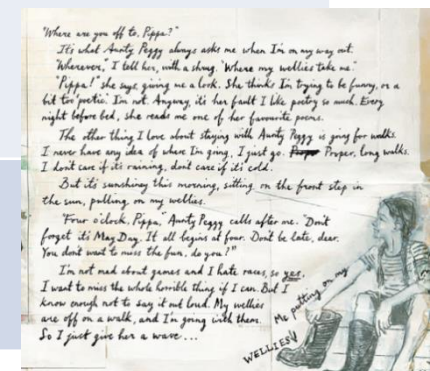 "Where are you off to, Pippa?"
It's what Aunty Peggy always asks me when I'm on my way out.
"Wherever," I tell her, with a shrug. "Where my wellies take me."
"Pippa!" she says, giving me a look. She thinks I'm trying to be funny, or a
bit too 'poetic'. I'm not. Anyway, it's her fault I like poetry so much. Every
night before bed, she reads me one of her favourite poems.
The other thing I love about staying with Aunty Peggy is going for walks.
I never have any idea of where I'm going, I just go. Proper, long walks.
I don't care if it's raining, don't care if it's cold.
But it's sunshiny this morning, sitting on the front step in
the sun, pulling on my wellies.
"Four o'clock, Pippa," Aunty Peggy calls after me. "Don't
forget it's May Day. It all begins at four. Don't be late, dear.
You don't want to miss the fun, do you?"
I'm not mad about games and I hate races, so yes.
I want to miss the whole horrible thing if I can. But I
know enough not to say it out loud. My wellies
are off on a walk, and I'm going with them.
So I just give her a wave...
Me putting on my
WELLIES!